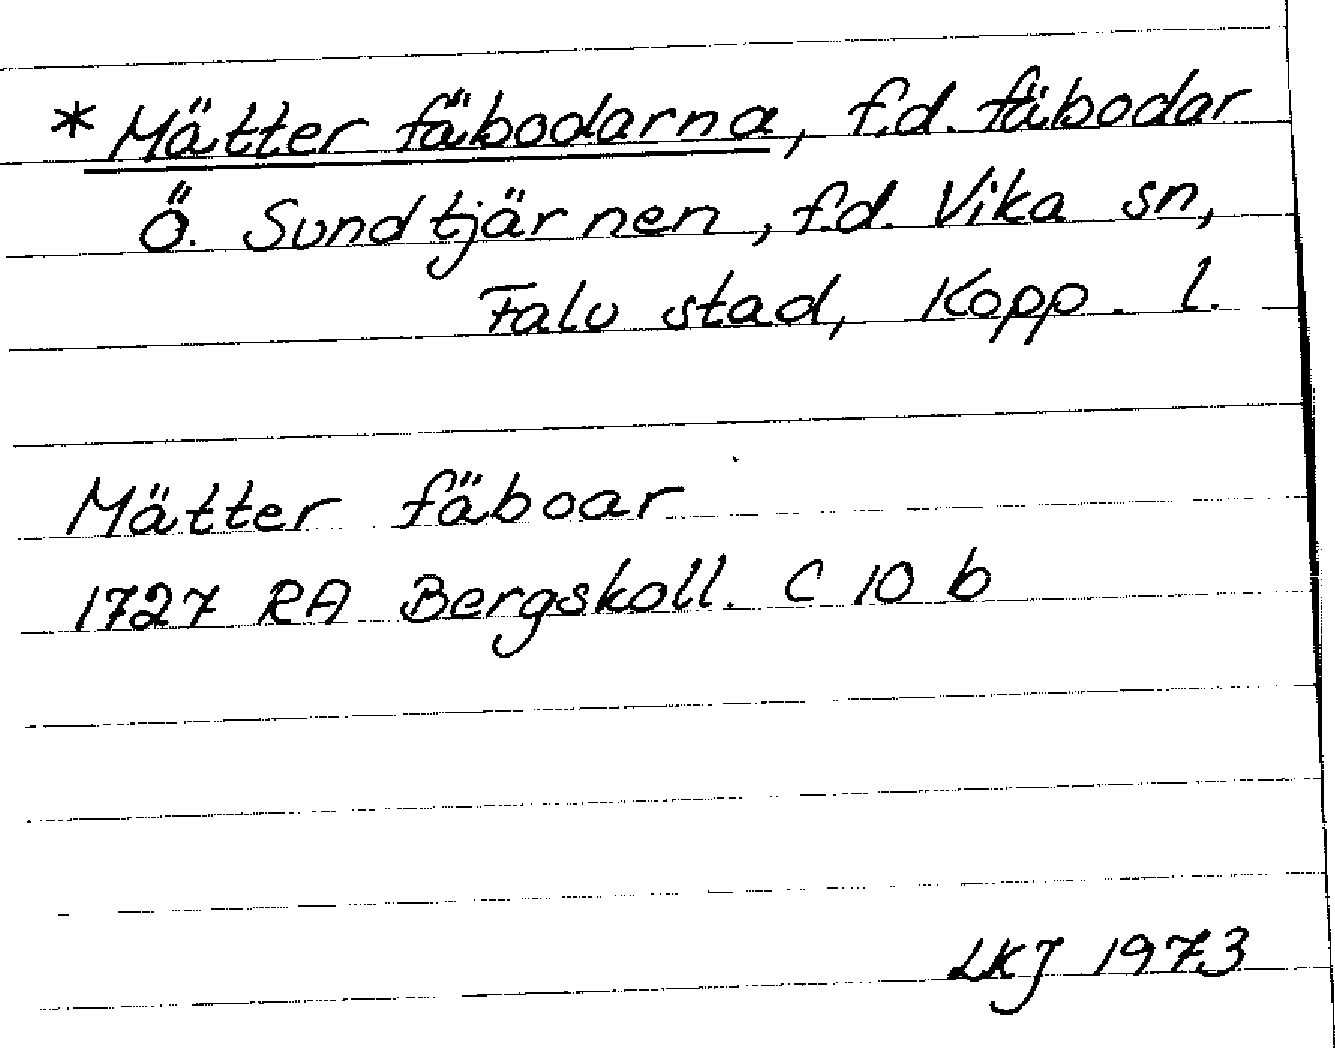 * Mätter fäbodarna, f.d. fäbodar
Ö. Sundtjärnen, f.d. Vika sn,
Falu stad, Kopp. l.
Mätter fäboar
1727 RA Bergskoll. C 10 b
LKJ 1973